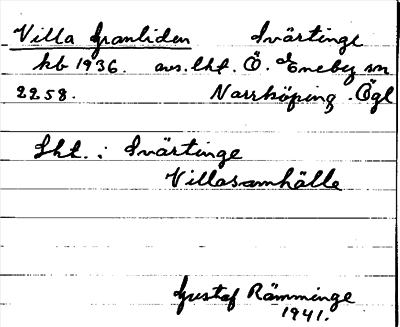 Villa Granliden Svärtinge
kb 1936. avs. lht. Ö. Eneby sn
2258. Norrköping. Ögl
Lht. : Svärtinge
Villasamhälle
Gustaf Rämminge
1941.